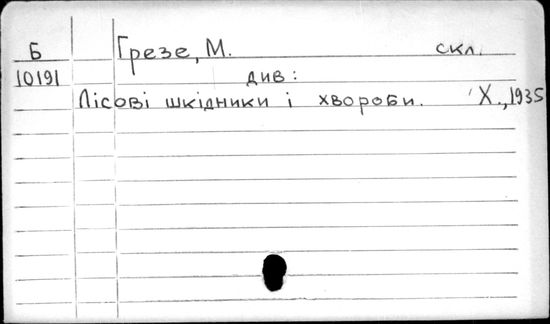 Б Грезе, М. скл.
10191 див:
Лісові шкідники і хвороби. Х., 1935